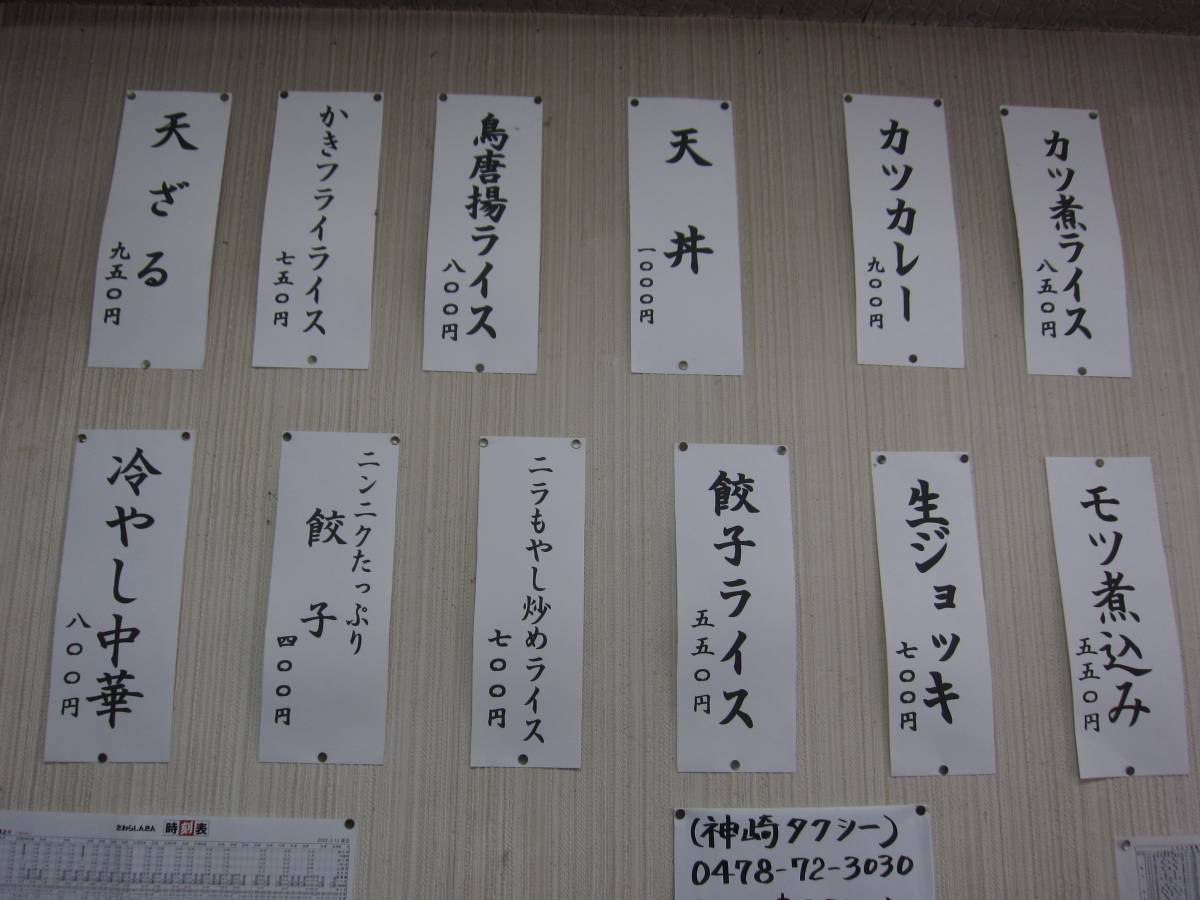 カツ煮ライス
八五〇円
カツカレー
九〇〇円
天丼
一〇〇〇円
鳥唐揚ライス
八〇〇円
かきフライライス
七五〇円
天ざる
九五〇円
モツ煮込み
五五〇円
生ジョッキ
七〇〇円
餃子ライス
五五〇円
ニラもやし炒めライス
七〇〇円
ニンニクたっぷり
餃子
四〇〇円
冷やし中華
八〇〇円
さわらしんきん 時刻表
(神崎タクシー)
0478-72-3030